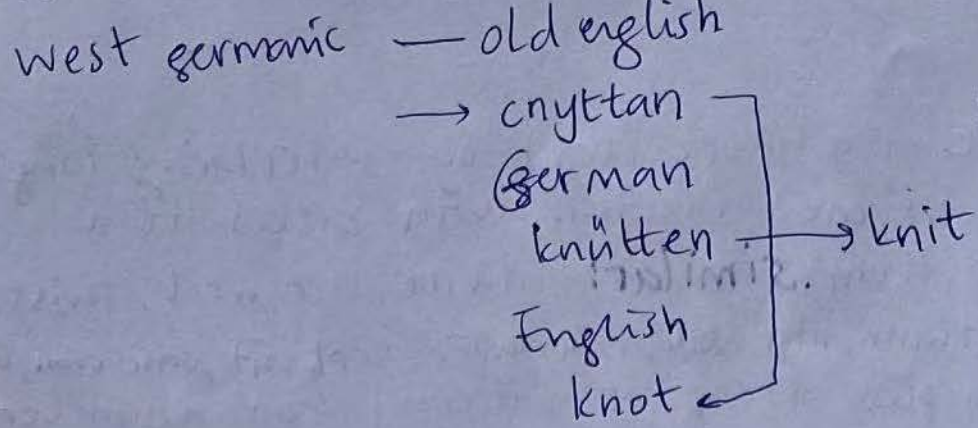 west germanic — old english
→ cnyttan
German
knütten → knit
English
knot ←